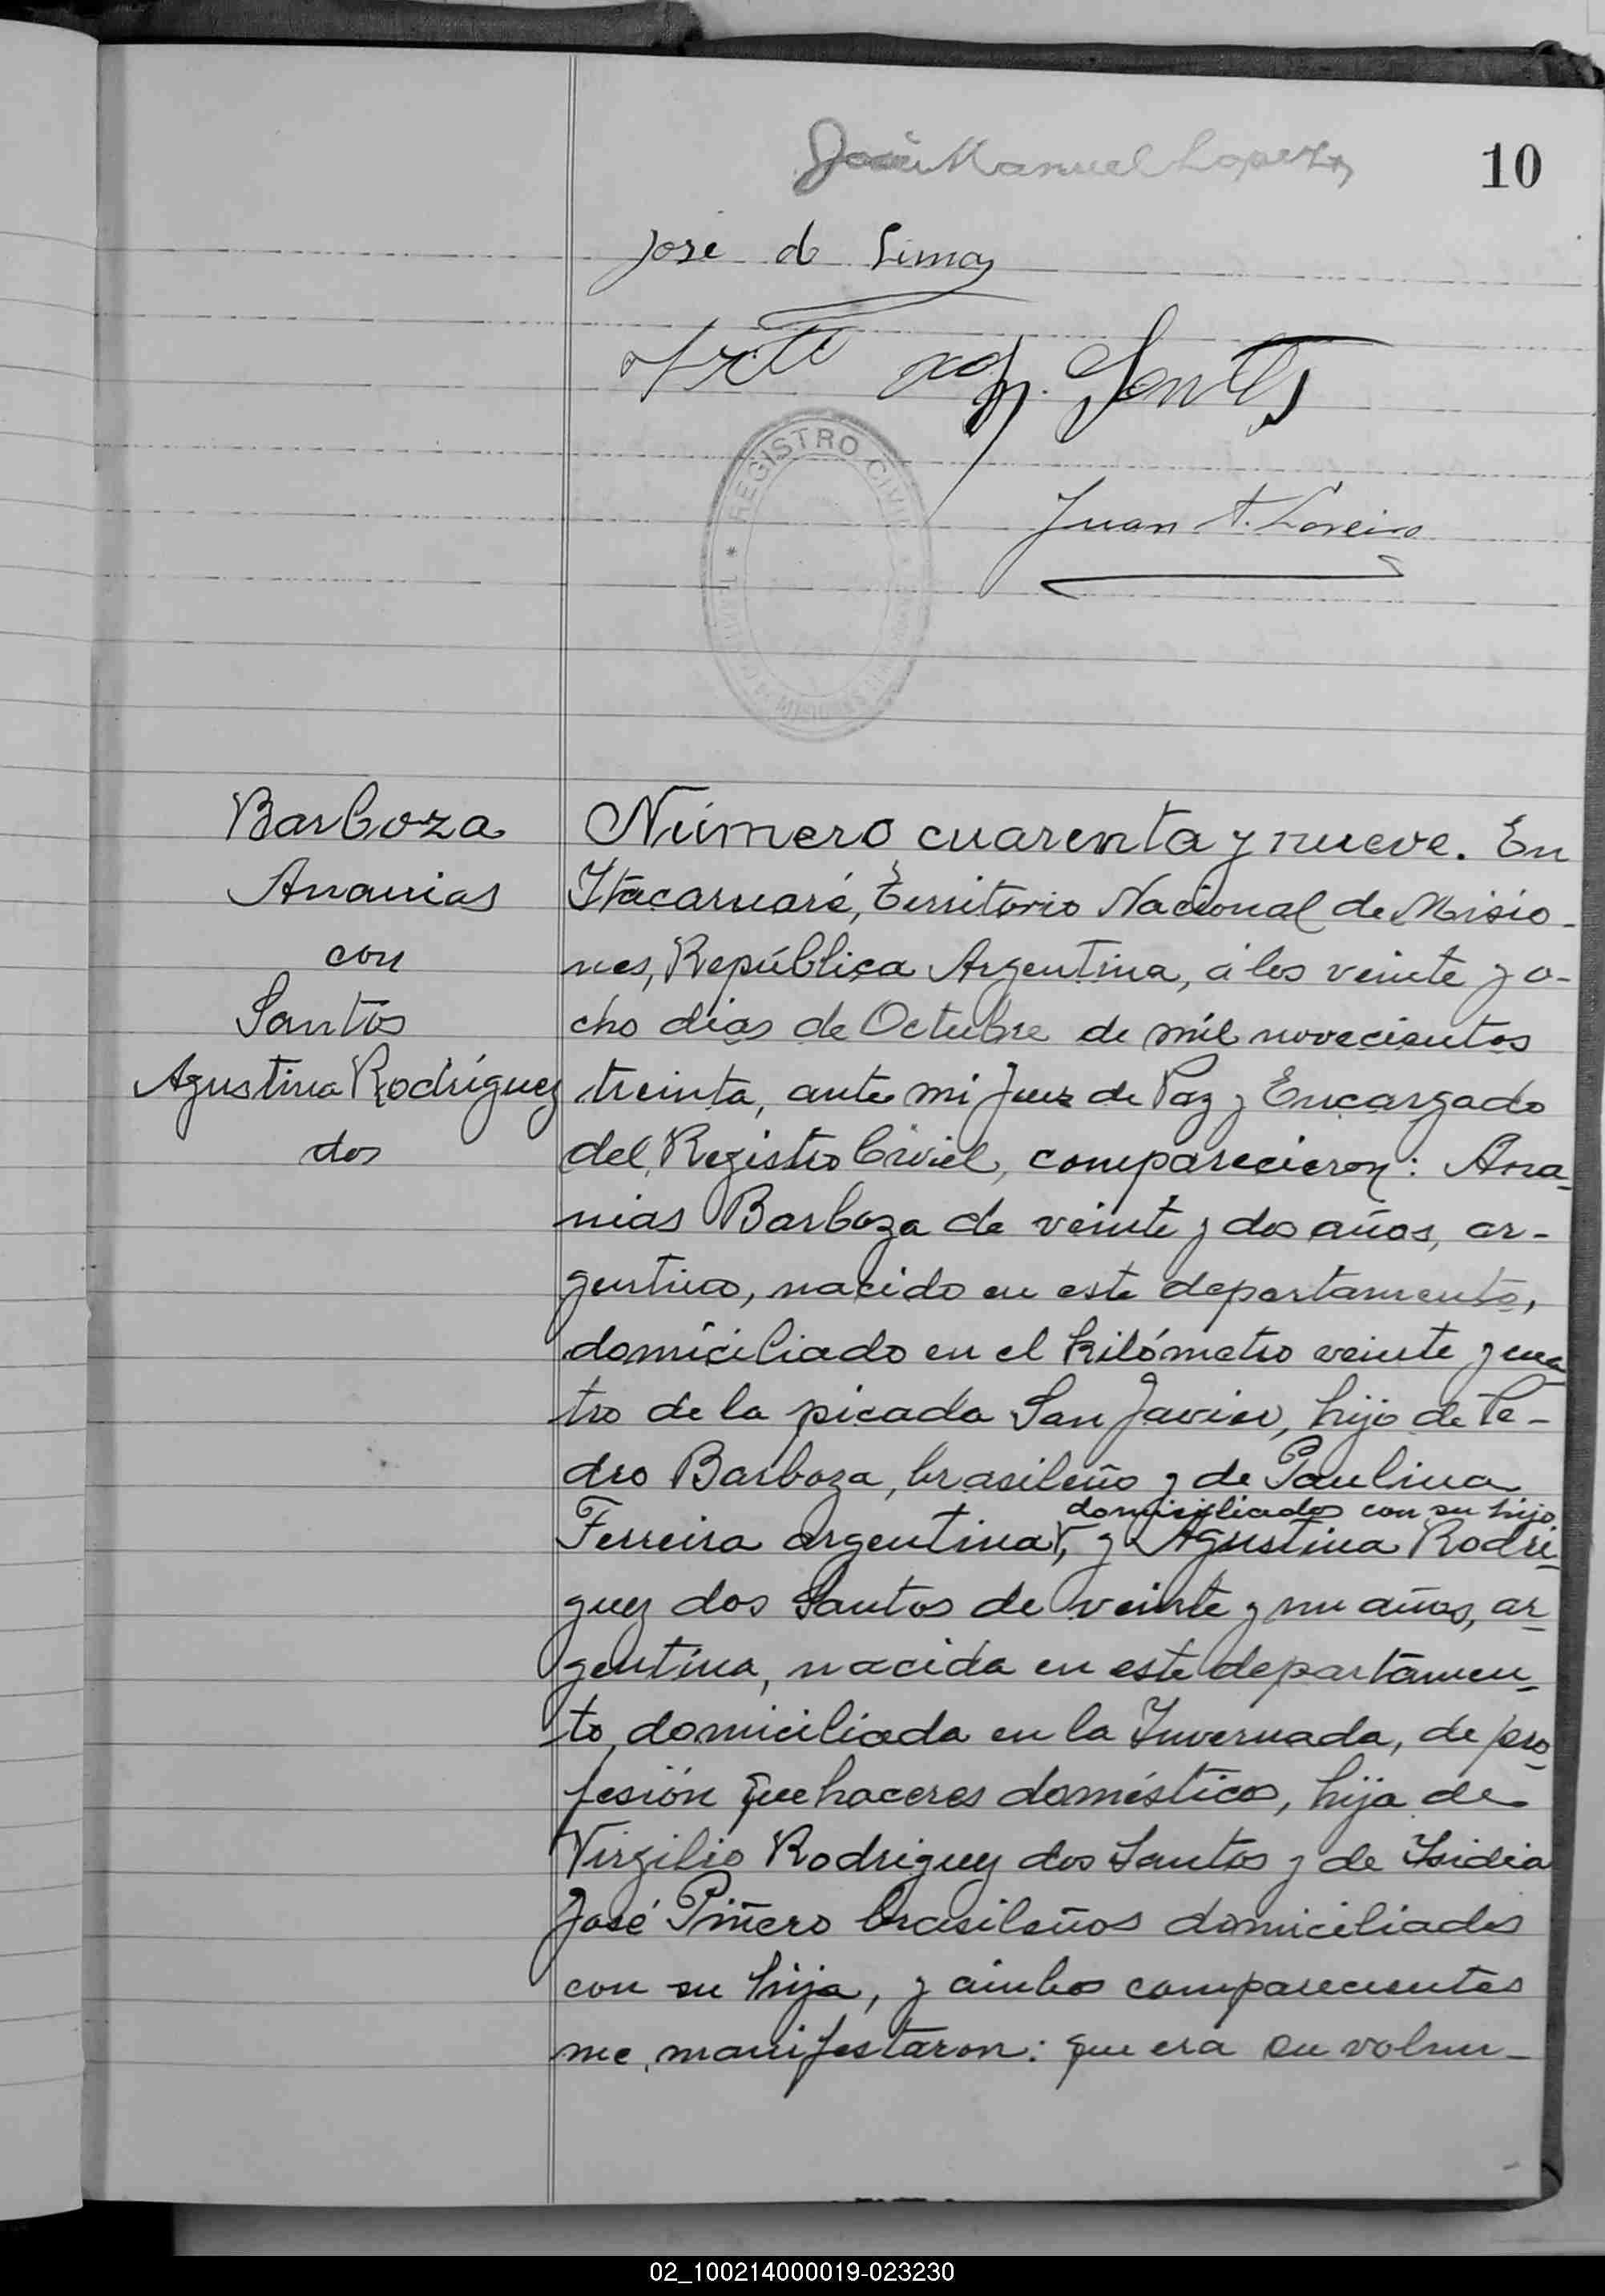 10
José Manuel Lopez
José de Lima
REGISTRO CIVIL
Juan A. Loreiro
Barboza
Ananias
con
Santos
Agustina Rodríguez
dos
Número cuarenta y nueve. En
Itacaruaré, Territorio Nacional de Misio-
nes, República Argentina, á los veinte y o-
cho dias de Octubre de mil novecientos
treinta, ante mi Juez de Paz y Encargado
del Registro Civil, comparecieron: Ana-
nias Barboza de veinte y dos años, ar-
gentino, nacido en este departamento,
domiciliado en el kilómetro veinte y cua
tro de la picada San Javier, hijo de Pe-
dro Barboza, brasileño y de Paulina
domiciliados con su hijo
Ferreira argentina, y Agustina Rodri-
guez dos Santos de veinte y un años, ar-
gentina, nacida en este departamen-
to, domiciliada en la Invernada, de pro-
fesión quehaceres doméstico, hija de
Virgilio Rodriguez dos Santos y de Isidia
José Piñero brasileños domiciliados
con su hija, y ambos comparecientes
me manifestaron: que era su volun-
02_100214000019-023230